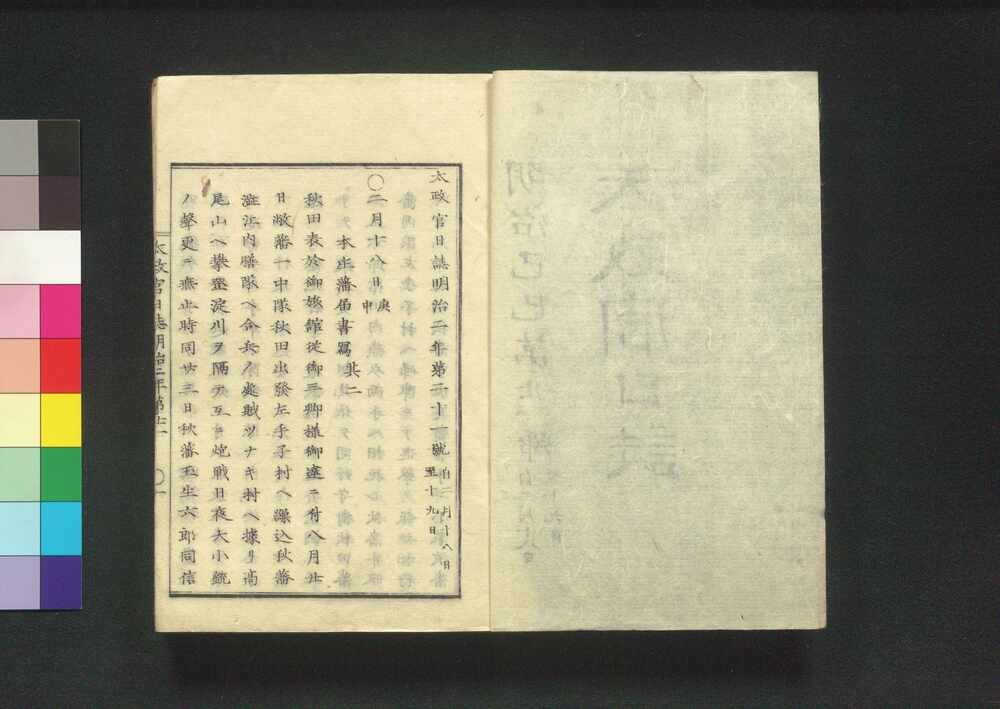 太政官日誌明治二年第二十一號 自二月十八日至十九日
〇二月十八日 庚申
本庄藩届書寫 其二
秋田表於御旅館従御三卿様御達ニ付八月廿
日敝藩一中隊秋田出發左手子村ヘ繰込秋藩
澁江内膳隊ヘ合兵ノ處賊ツナキ村ヘ據リ高
尾山ヘ攀登淀川ヲ隔テ互ニ炮戰日夜大小銃
ノ聲更ニ無止時同廿三日秋藩玉生六郎同信
太政官日誌明治二年第廿一 〇一